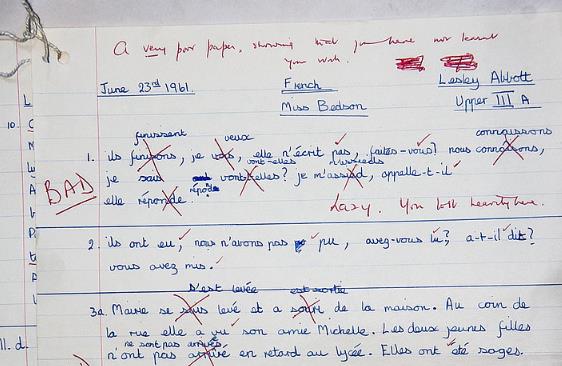 A very poor paper, showing that you have not learnt
your work.
June 23rd 1961. French Lesley Abbott
Miss Bedson Upper III A
finissent veux connaissons
1. ils finissons, je vois, elle n'écrit pas, faites-vous? nous connaisons,
vont-elles
je sais vont-elles? je m'assied, appelle-t-il
BAD
répond
elle réponde.
Lazy. You lost heavily here.
2. ils ont eu, nous n'avons pas pu, avez-vous lu? a-t-il dit?
vous avez mis.
s'est levée est sortie
3a. Marie se levé et a de la maison. Au coin de
la rue elle a vu son amie Michelle. Les deux jeunes filles
ne sont pas arrivés
n'ont pas arrivé en retard au lycée. Elles ont été sages.
10.
11. d.